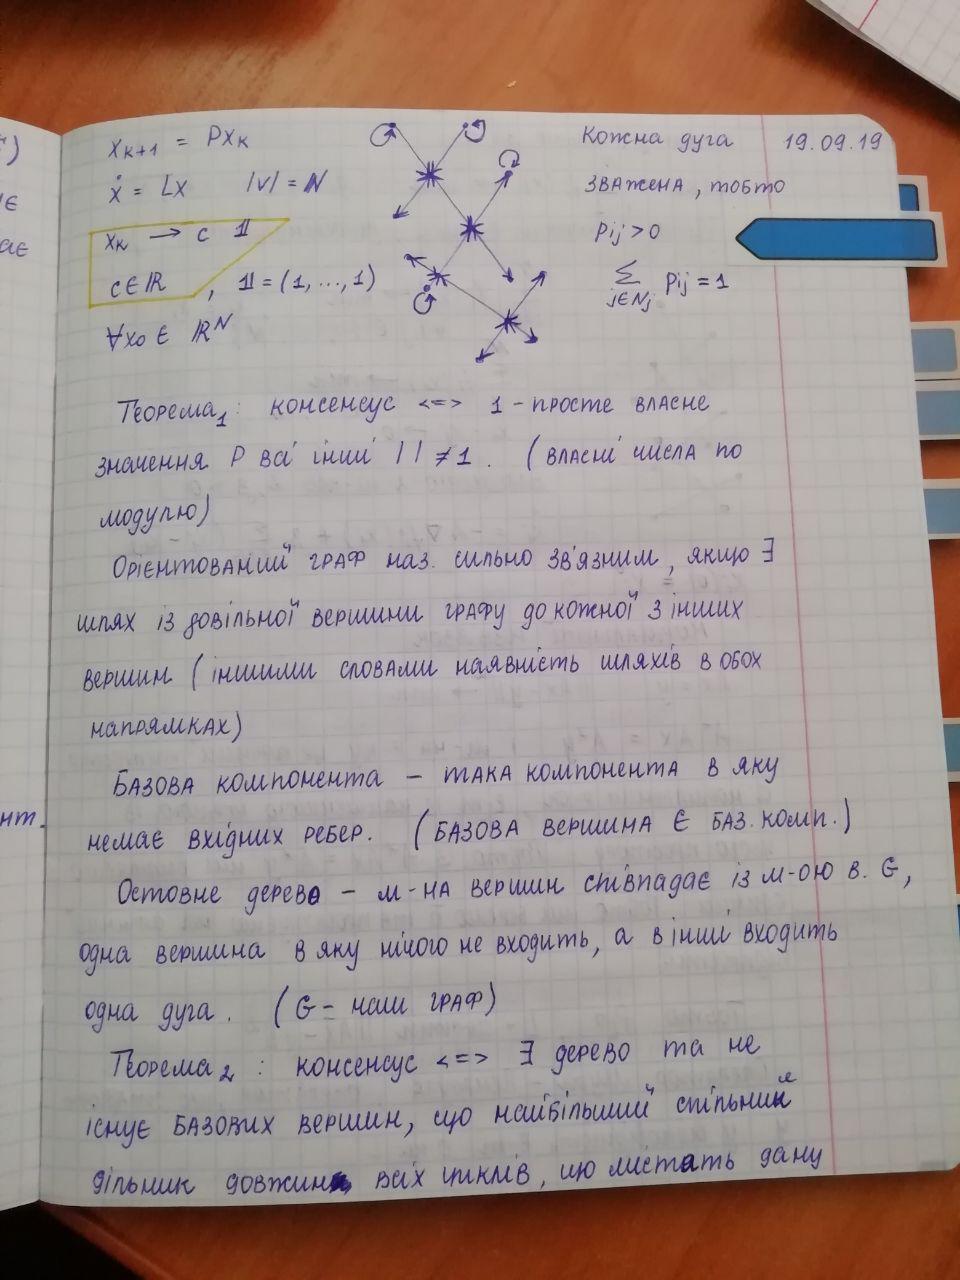 x_{k+1} = Px_k
ẋ = Lx |V| = N
x_k → c 𝟙
c ∈ ℝ , 𝟙 = (1,...,1)
∀x₀ ∈ ℝ^N
Кожна дуга 19.09.19
зважена, тобто
p_{ij} > 0
∑_{j∈N_j} p_{ij} = 1
Теорема₁ : консенсус <=> 1 - просте власне
значення P всі інші | | ≠ 1. (власні числа по
модулю)
Орієнтований граф наз. сильно зв'язним, якщо ∃
шлях із довільної вершини графу до кожної з інших
вершин (іншими словами наявність шляхів в обох
напрямках)
Базова компонента – така компонента в яку
немає вхідних ребер. (базова вершина є баз. комп.)
Остовне дерево – м-на вершин співпадає із м-ою в. G,
одна вершина в яку нічого не входить, а в інші входить
одна дуга. (G – наш граф)
Теорема₂ : консенсус <=> ∃ дерево та не
існує базових вершин, що найбільший спільний
дільник довжин всіх циклів, що листать дану
)
є
ає
нт.